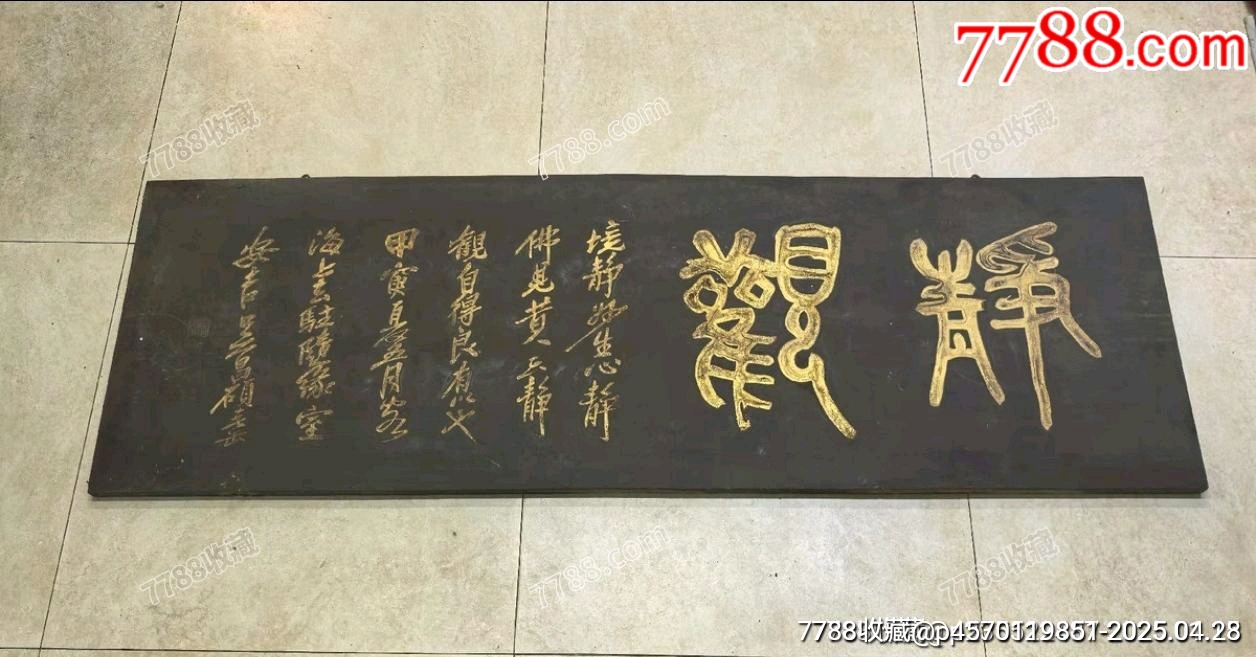 7788.com
靜觀
境靜妙生心靜
佛見昔人云靜
觀自得良有以也
甲寅夏五月客
海上去駐隨緣室
安吉吳昌碩老缶
7788收藏
7788.com
7788收藏
7788收藏
7788.com
7788收藏
7788收藏@p4570119851-2025.04.28